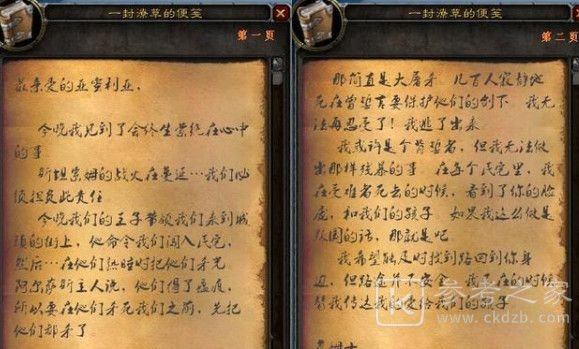 一封潦草的便笺
第一页
最亲爱的亚蜜利亚,
今晚我见到了会终生萦绕在心中
的事
斯坦索姆的战火在蔓延…我们必
须担负此责任
今晚我们的王子带领我们来到城
镇的街上,他命令我们闯入民宅,
然后…在他们熟睡时把他们杀光
阿尔萨斯主人说,他们得了瘟疫,
所以要在他们杀死我们之前,先把
他们都杀了
一封潦草的便笺
第二页
那简直是大屠杀 几百人寂静地
死在曾誓言要保护他们的剑下 我无
法再忍受了!我逃了出来
我或许是个背誓者,但我无法做
出那样残暴的事 在每个民宅里,我
在受难者死去的时候,看到了你的脸
庞,和我们的孩子 如果我这么做是
叛国的话,那就是吧
我希望能及时找到路回到你身
边,但路途并不安全 我不在的时候
替我传达我的爱给我们的孩子
参考之家
www.ckdzb.com